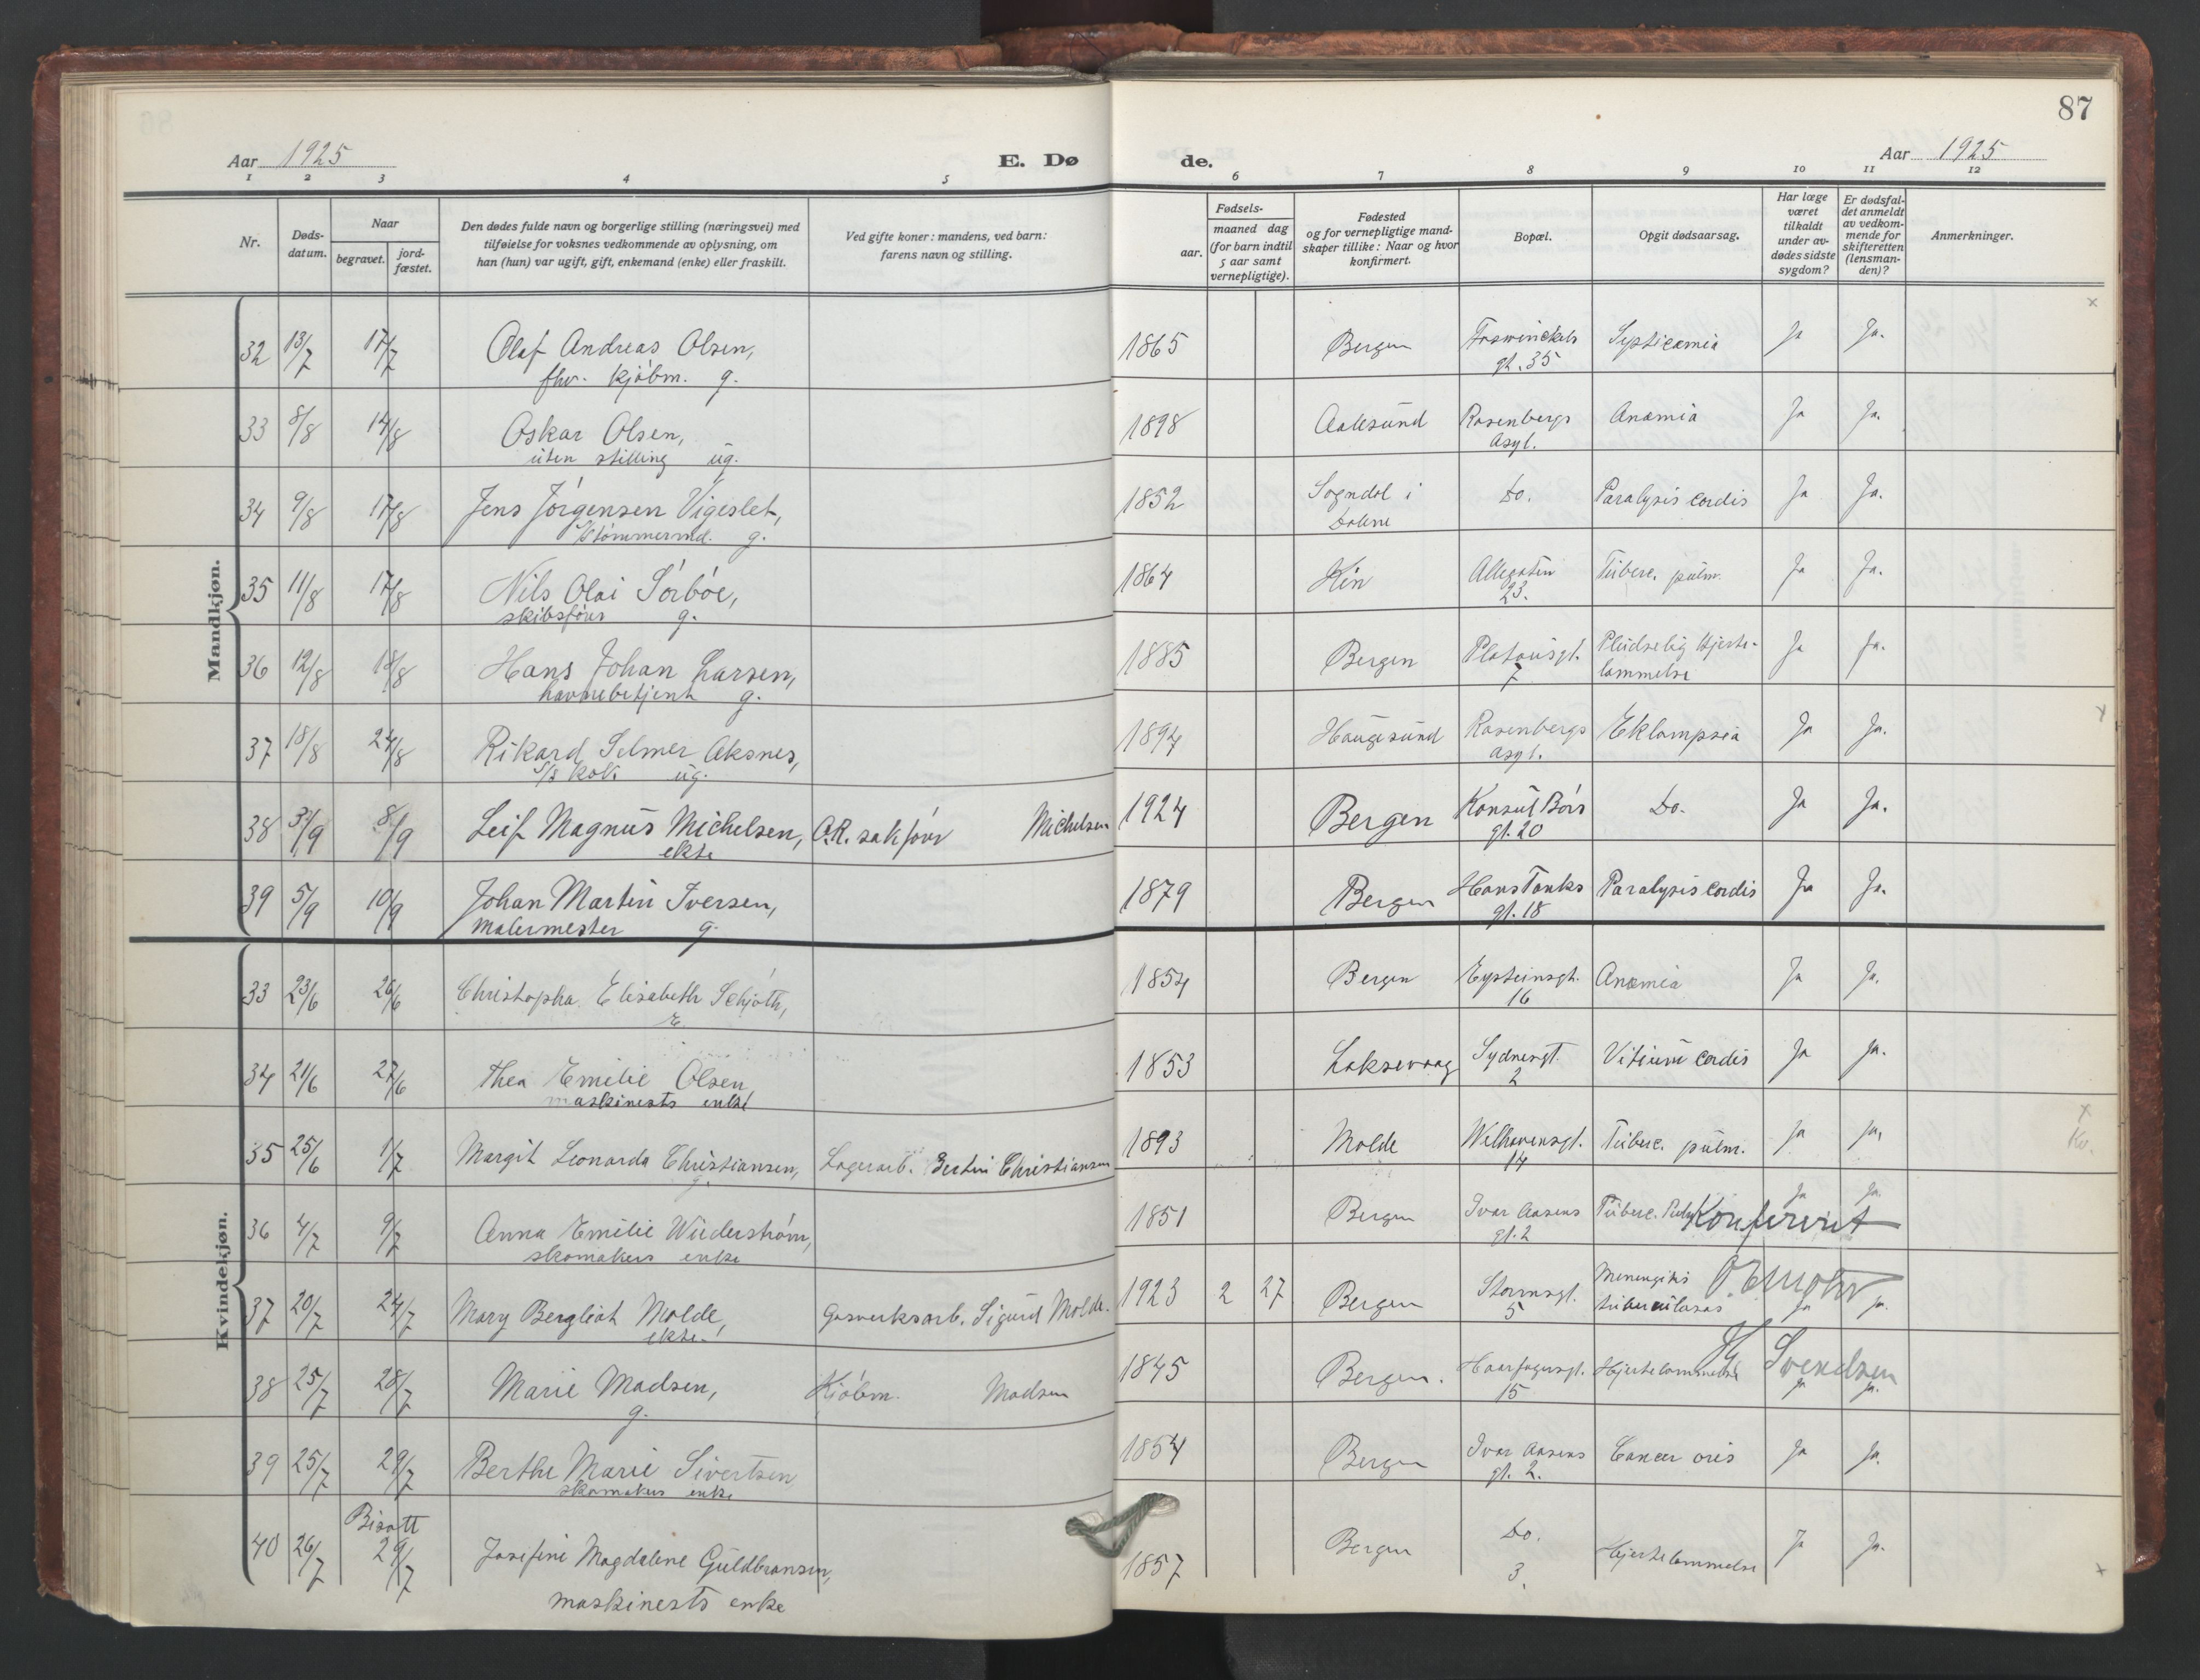 87
Aar 1925
E. Dø
de.
Aar 1925
1 2 3 4 5 6 7 8 9 10 11 12
Nr.
Døds-
datum.
Naar
begravet.
jord-
fæstet.
Den dødes fulde navn og borgerlige stilling (næringsvei) med
tilføielse for voksnes vedkommende av oplysning, om
han (hun) var ugift, gift, enkemand (enke) eller fraskilt.
Ved gifte koner: mandens, ved barn:
farens navn og stilling.
Fødsels-
aar.
maaned dag
(for barn indtil
5 aar samt
vernepligtige).
Fødested
og for vernepligtige mand-
skaper tillike: Naar og hvor
konfirmert.
Bopæl.
Opgit dødsaarsag.
Har læge
været
tilkaldt
under av-
dødes sidste
sygdom?
Er dødsfal-
det anmeldt
av vedkom-
mende for
skifteretten
(lensman-
den)?
Anmerkninger.
Mandkjøn.
32 13/7 17/7 Olaf Andreas Olsen, 1865 Bergen gt. 35 Septicæmia Ja Ja.
fhv. kjøbm. g.
33 8/8 14/8 Oskar Olsen, 1898 Aalesund Rosenbergs Anæmia Ja Ja.
uten stilling ug. Asyl.
34 9/8 17/8 Jens Jørgensen Vigeslet, 1852 Sogndal i Do. Paralysis cordis Ja Ja.
tømmermd. g. Dalene
35 11/8 17/8 Nils Olai Sørbøe, 1864 Kin Allegaten Tuberc. pulm. Ja Ja.
skibsfører g. 23.
36 12/8 18/8 Hans Johan Larsen, 1885 Bergen Platousgt. Pludselig Hjerte- Ja Ja.
havnebetjent g. 7 lammelse
37 18/8 24/8 Rikard Selmer Aksnes, 1894 Haugesund Rosenbergs Eklampsia Ja Ja.
S/S kok ug. Asyl.
38 3/9 8/9 Leif Magnus Michelsen, O.R. sakfører Michelsen 1924 Bergen Konsul Børs Do. Ja Ja.
ekte gt. 20
39 5/9 10/9 Johan Martin Iversen, 1879 Bergen Hans Tanks Paralysis cordis Ja Ja.
malermester g. gt. 18
Kvindekjøn.
33 23/6 26/6 Christopha Elisabeth Schjøth, 1854 Bergen Eysteinsgt. Anæmia Ja Ja.
E. 16
34 21/6 27/6 Thea Emilie Olsen, 1853 Laksevaag Sydnesgt. Vitium cordis Ja Ja.
maskinests enke 2
35 25/6 1/7 Margit Leonarda Christiansen, Lagerarb. Bertin Christiansen 1893 Molde Welhavensgt. Tuberc. pulm. Ja Ja,
g. 14
36 4/7 9/7 Anna Emilie Wiederstrøm, 1851 Bergen Ivar Aasens Tuberc. Pulm. Ja Ja.
skomakers enke gt. 2
Konferert
37 20/7 24/7 Mary Bergliot Molde, Gasverksarb. Sigurd Molde. 1923 2 27 Bergen Stormsgt. Meningitis Ja Ja.
ekte. 5 tuberculosas
38 25/7 28/7 Marie Madsen, Kjøbm. Madsen 1845 Bergen. Haarfagersgt. Hjertelammelse Ja Ja.
g. 15
Svendsen
39 25/7 29/7 Berthe Marie Sivertsen 1854 Bergen Ivar Aasens Cancer oris Ja Ja.
skomakers enke gt. 2.
Bisatt
40 26/7 29/7 Josefine Magdalene Guldbransen, 1857 Bergen Do. Hjertelammelse Ja Ja.
maskinests enke 3.